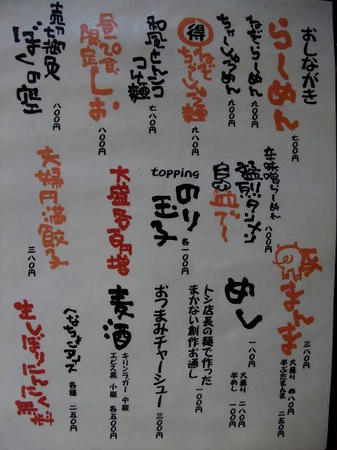 おしながき
らーめん 七〇〇円
ねぎらーめん 九〇〇円
ちゃーしゅーめん 九〇〇円
得 ねぎちゃーしゅー麺 九八〇円
和風とんこつつけ麺 七八〇円
昼20食限定しお 八〇〇円
売切御免 八〇〇円
辛味噌らーめん 八〇〇円
topping
のり
玉子 各一〇〇円
大盛各百円増
大揚円満餃子 三八〇円
まんま 三八〇円
大盛り 四八〇円
半ぶたまんま 二五〇円
めし 一八〇円
大盛り 二八〇円
半めし 一〇〇円
トシ店長の麺で作った
まかない創作お通し 一〇〇円
おつまみチャーシュー 三〇〇円
麦酒
キリンラガー 中瓶
エビス黒 小瓶 各五〇〇円
各種 二五〇円
生しぼりにんにく無料